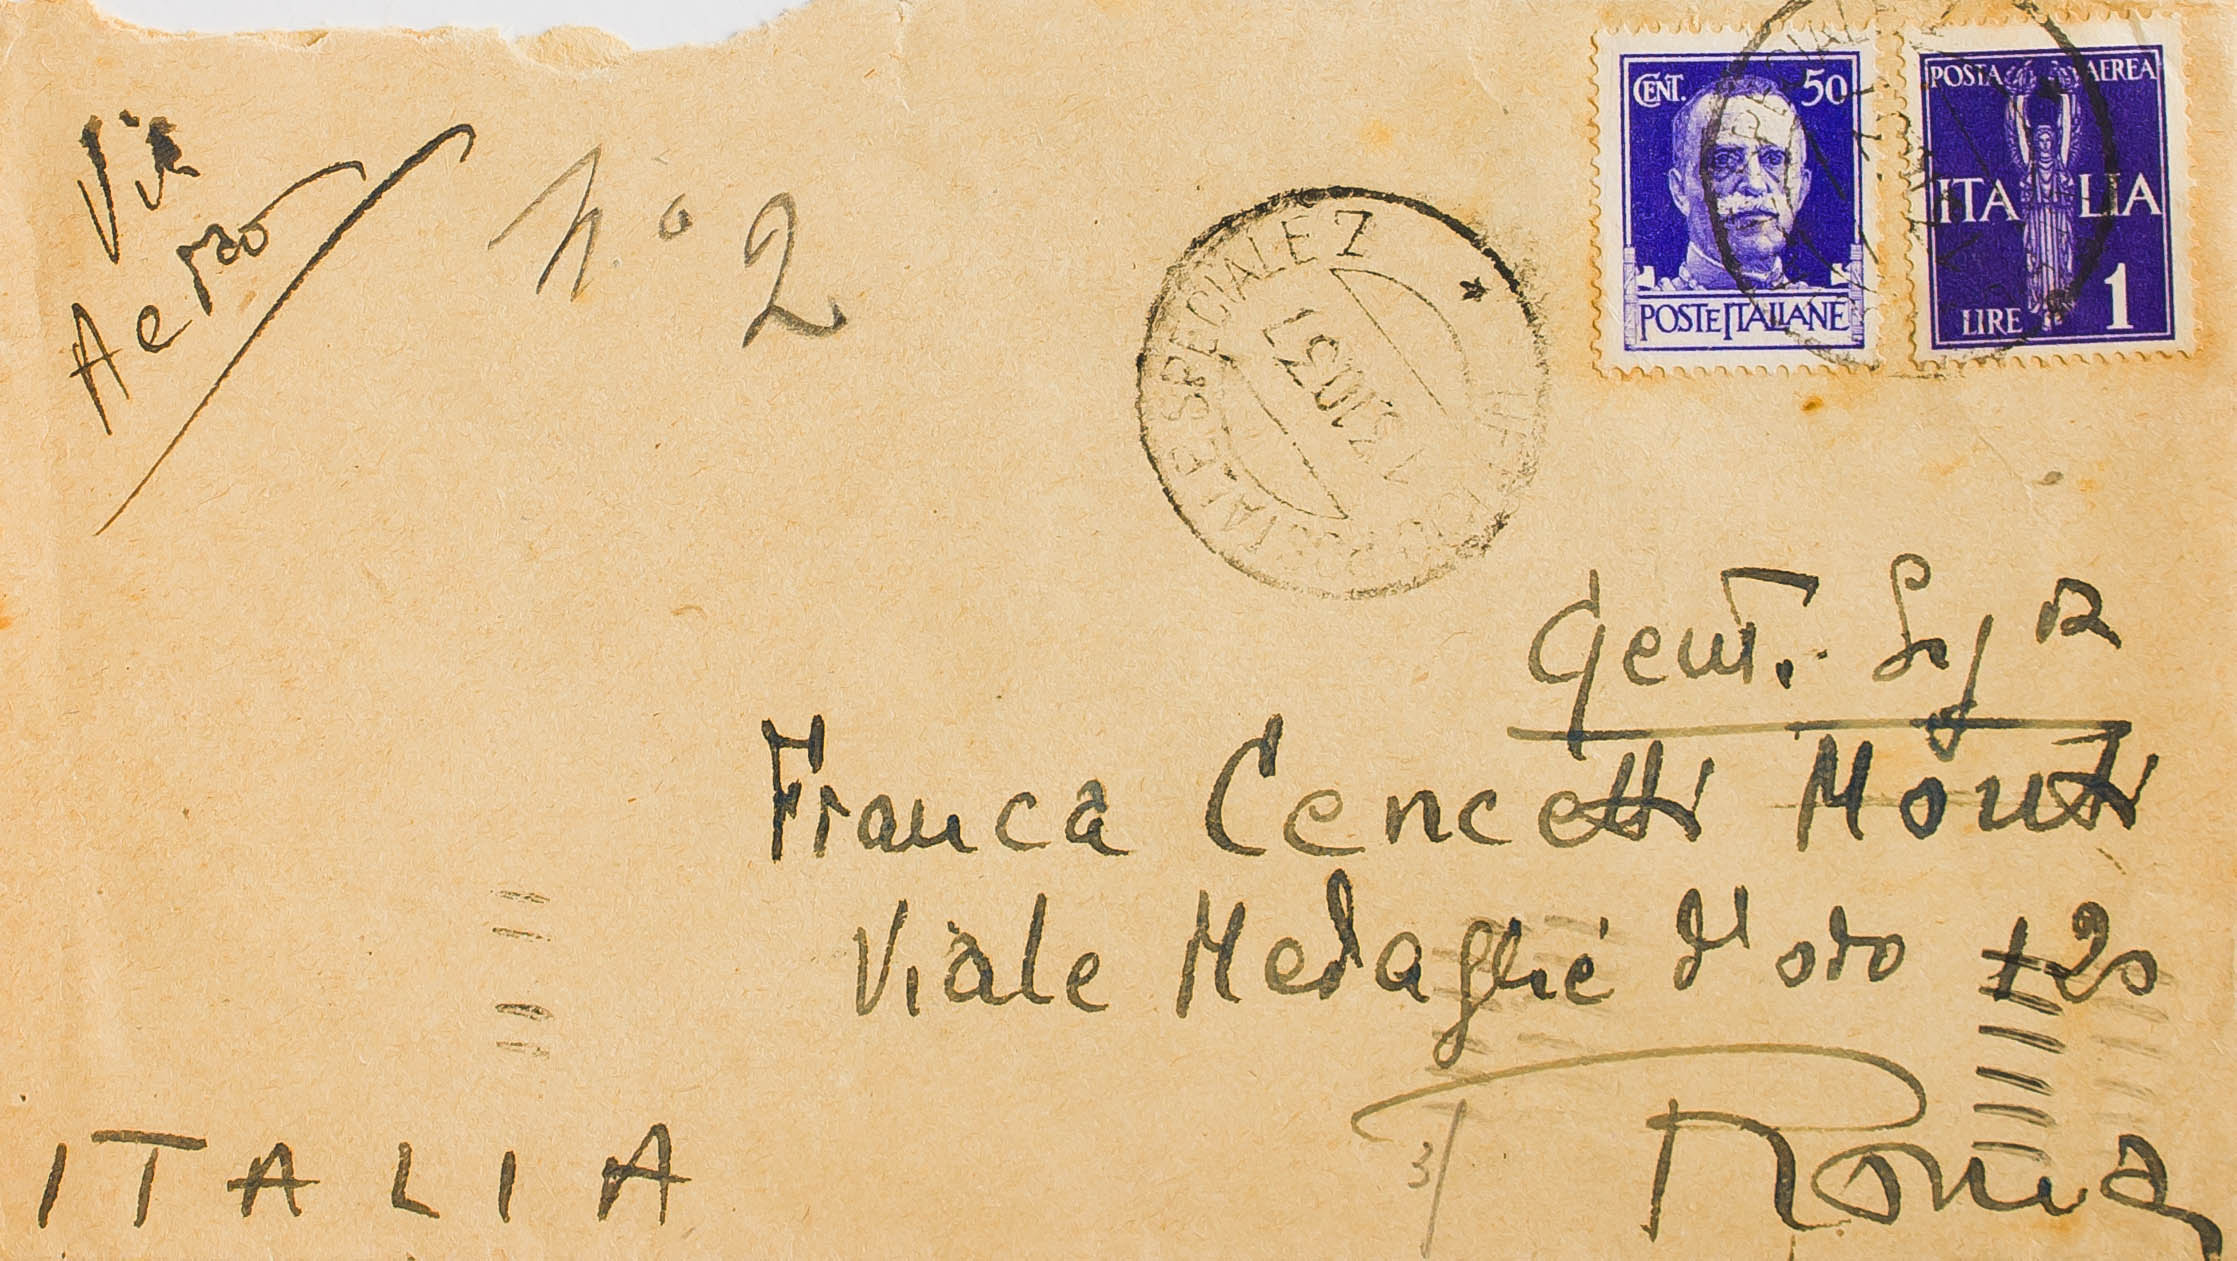 Via
Aerea
n° 2
CENT. 50
POSTE ITALIANE
POSTA AEREA
ITALIA
LIRE 1
POSTALE SPECIALE 7
Gent. Sigra
Franca Cencetti Monti
Viale Medaglie d'oro 120
Roma
ITALIA